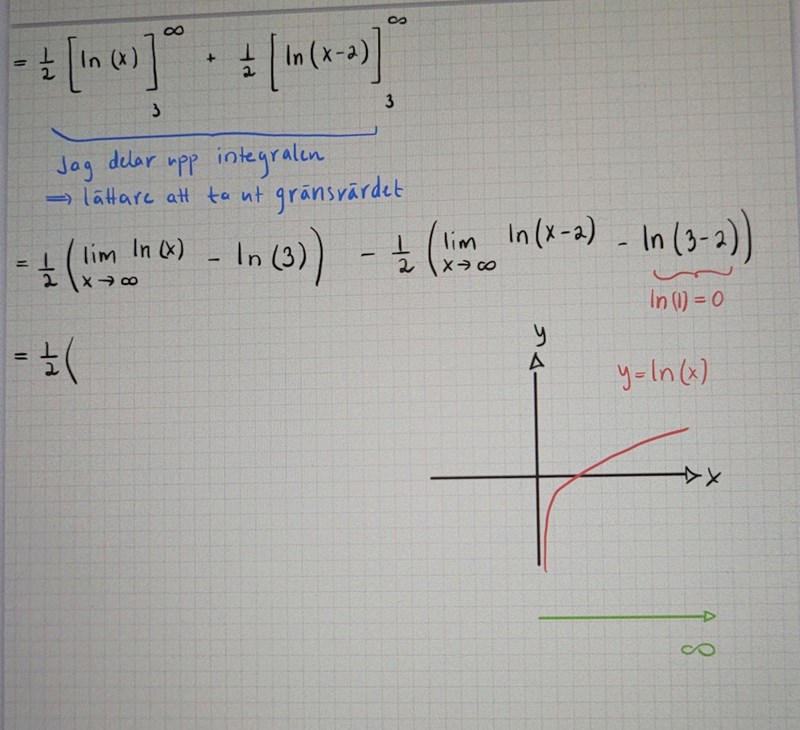 = 1/2 [ln (x)]₃^∞ + 1/2 [ln (x-2)]₃^∞
Jag delar upp integralen
⇒ lättare att ta ut gränsvärdet
= 1/2 (lim x→∞ ln (x) - ln (3)) - 1/2 (lim x→∞ ln (x-2) - ln (3-2))
ln (1) = 0
= 1/2 (
y
y = ln (x)
x
∞